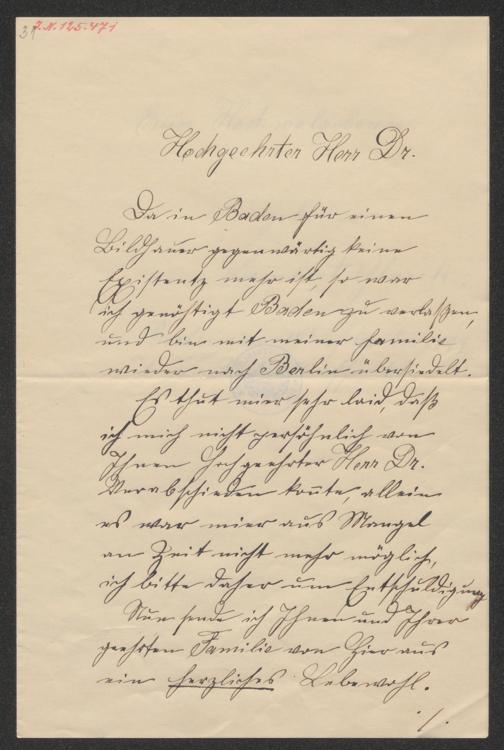 J.N. 125.471
Hochgeehrter Herr Dr.
Da in Baden für einen
Bildhauer gegenwärtig keine
Existentz mehr ist, so war
ich genöthigt Baden zu verlaßen,
und bin mit meiner Familie
wieder nach Berlin übersiedelt.
Es thut mier sehr leid, daß
ich mich nicht persöhnlich von
Ihnen hochgeehrter Herr Dr.
Verabschieden kon̅te, allein
es war mier aus Mangel
an Zeit nicht mehr möglich,
ich bitte daher um Entschuldigung
Nun sende ich Ihnen und Ihrer
geehrten Familie von Hier aus
ein herzliches Lebewohl.
./.